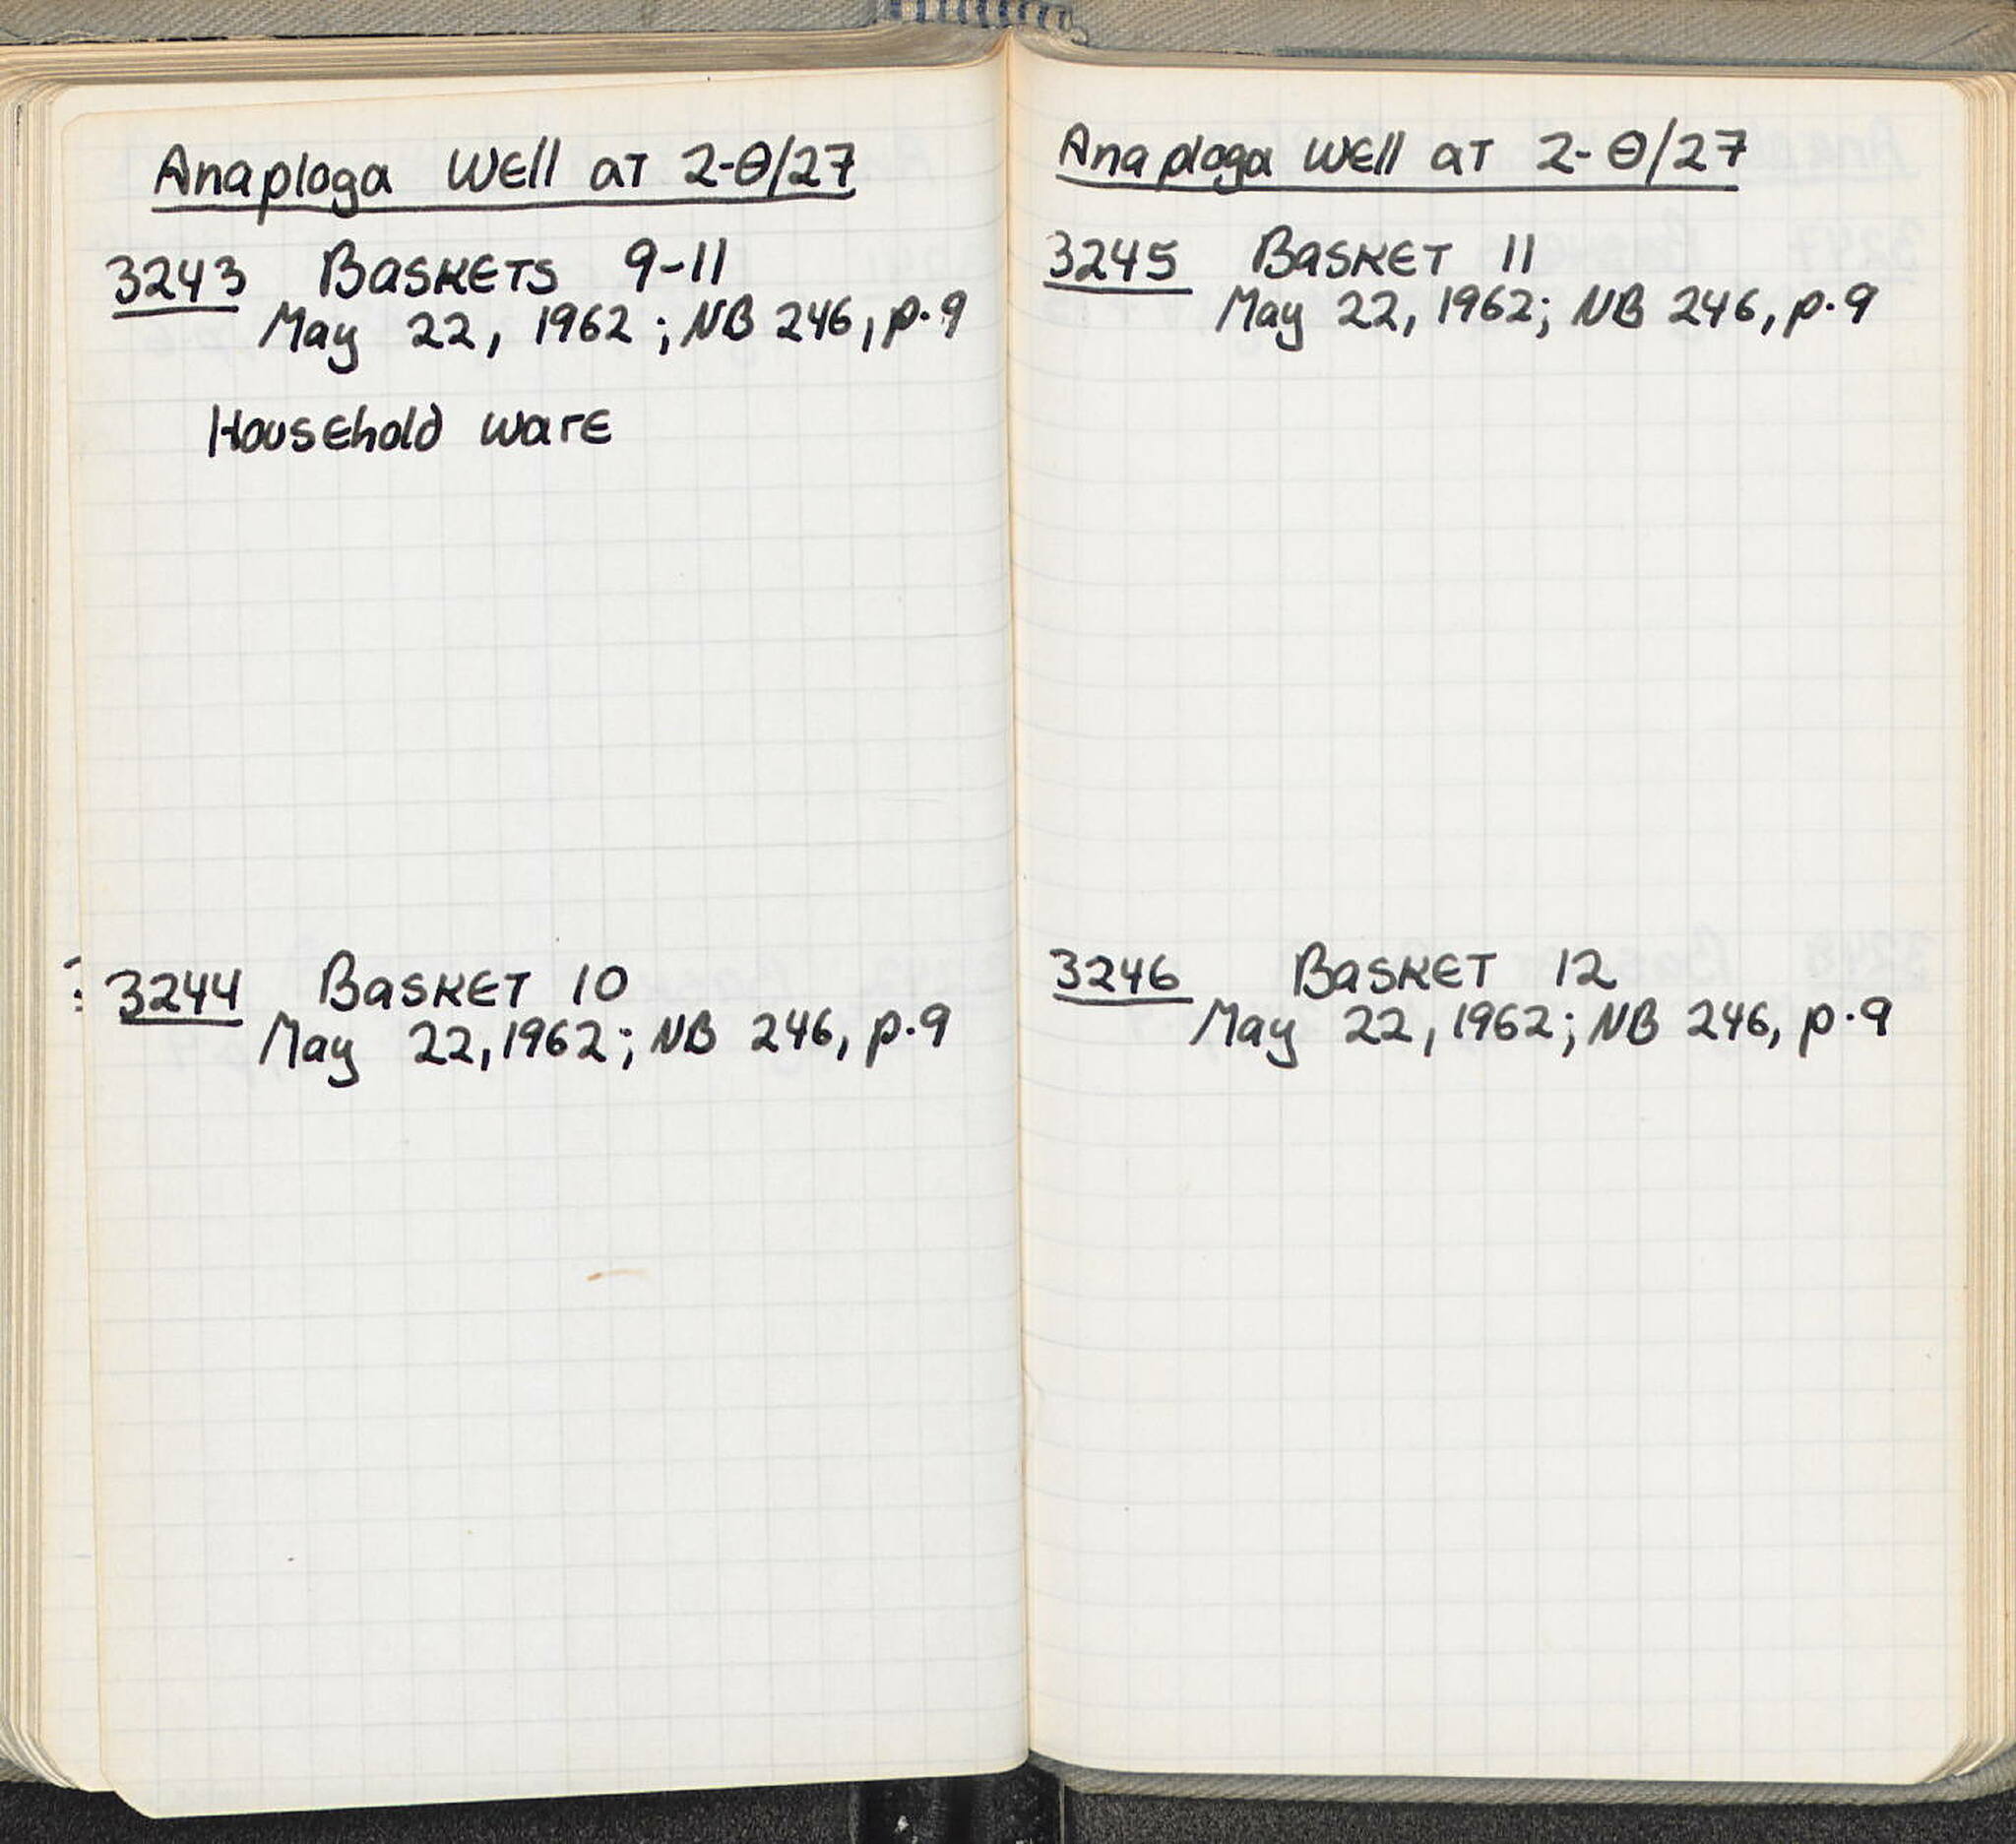 Anaploga Well at 2-Θ/27
3243 Baskets 9-11
May 22, 1962; NB 246, p.9
Household ware
3244 Basket 10
May 22, 1962; NB 246, p.9
Anaploga Well at 2-Θ/27
3245 Basket 11
May 22, 1962; NB 246, p.9
3246 Basket 12
May 22, 1962; NB 246, p.9